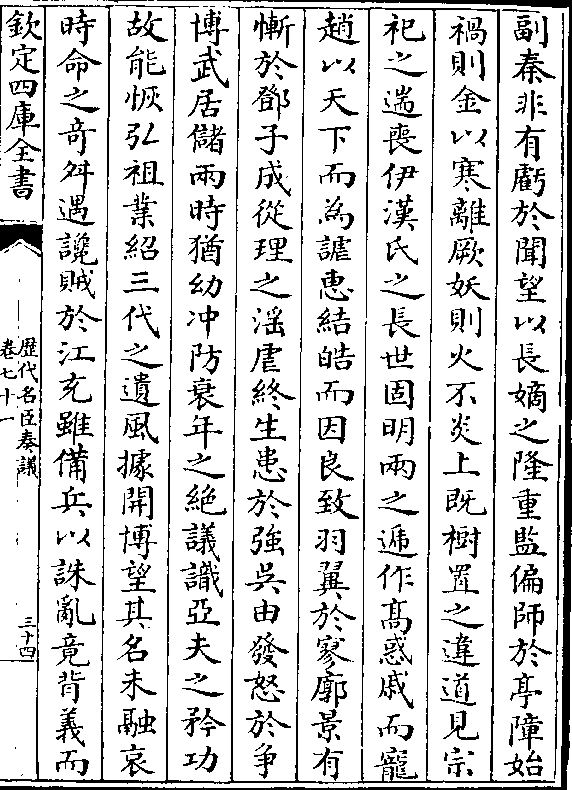 副秦非有虧於聞望以長嫡之隆重監偏師於亭障始
禍則金以寒離厥妖則火不炎上既樹置之違道見宗
祀之遄喪伊漢氏之長世固明兩之遞作高惑戚而寵
趙以天下而為謔惠結皓而因良致羽翼於寥廓景有
慚於鄧子成從理之滛虐終生患於強吳由發怒於爭
博武居儲兩時猶幼冲防衰年之絶議識亞夫之矜功
故能恢弘祖業紹三代之遺風據開博望其名未融哀
時命之奇舛遇讒賊於江充雖備兵以誅亂竟背義而
欽定四庫全書
歷代名臣奏議
卷七十一
三十四